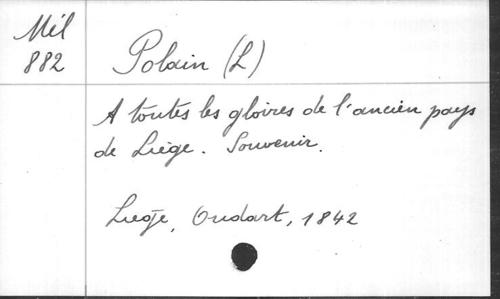 Mél
882
Polain (L)
A toutes les gloires de l'ancien pays
de Liège. Souvenir.
Liège, Oudart, 1842